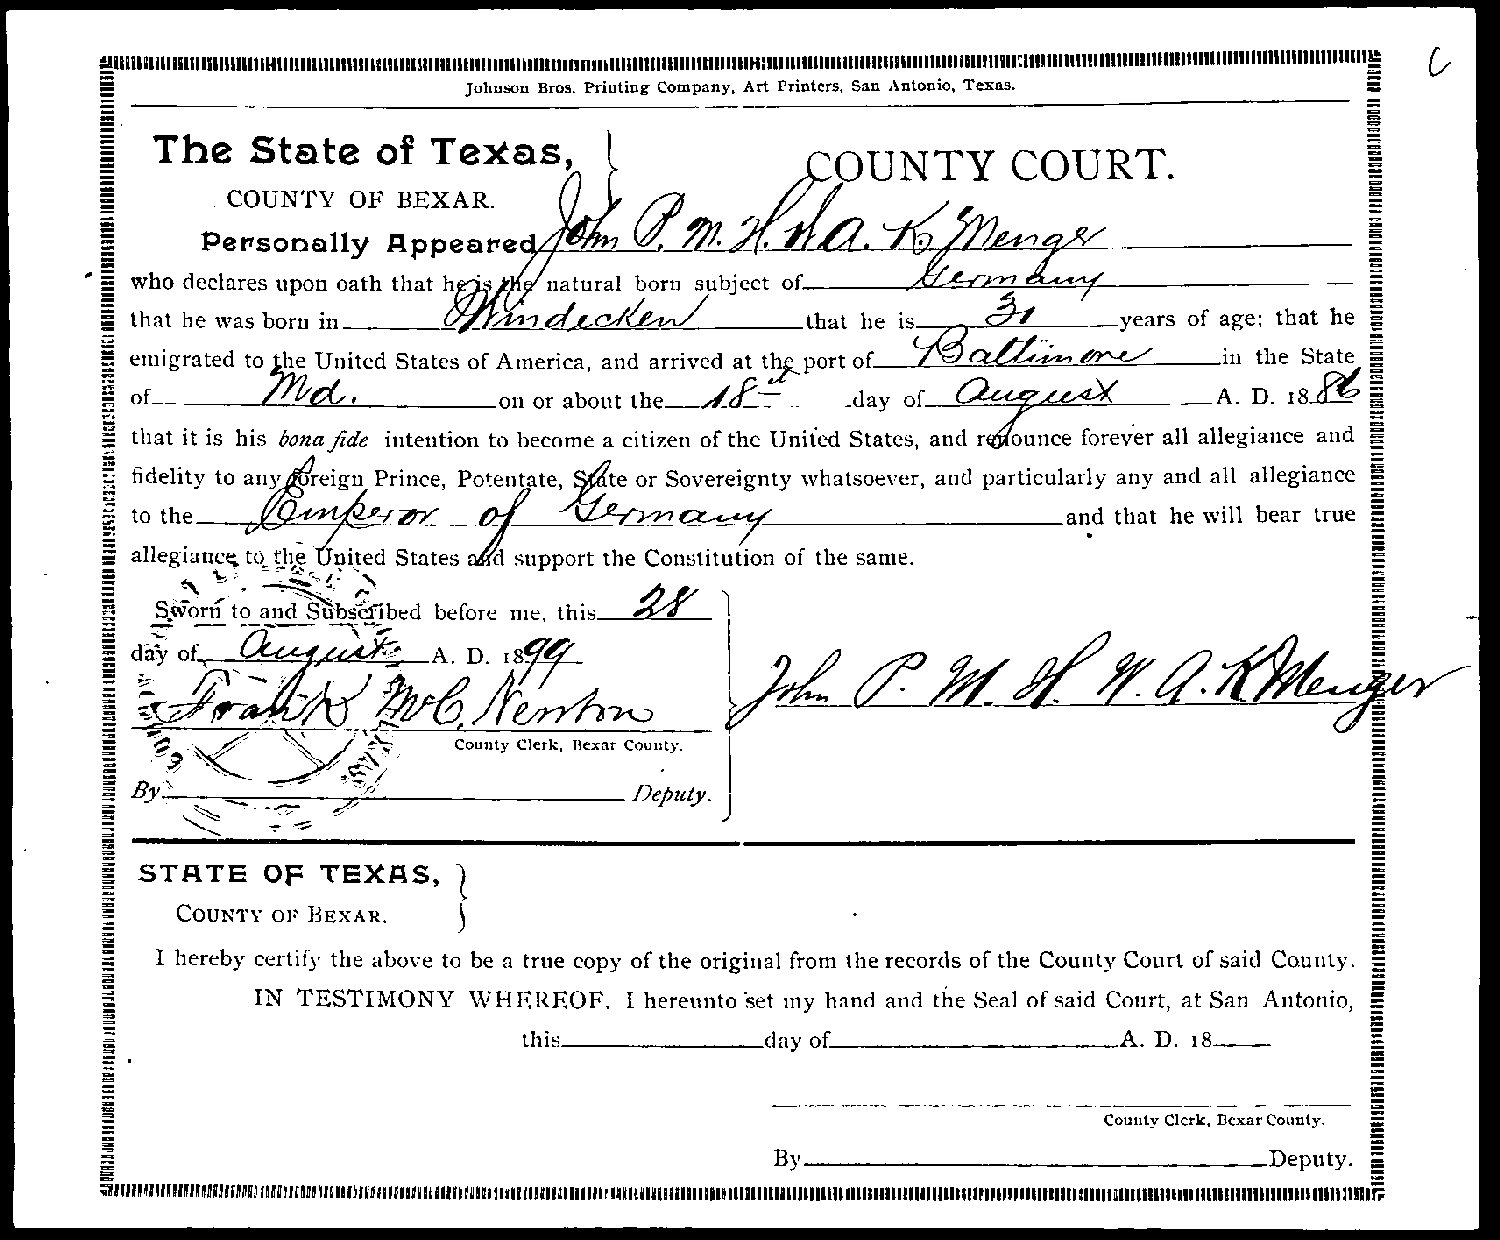 C
Johnson Bros. Printing Company, Art Printers, San Antonio, Texas.
The State of Texas,
COUNTY OF BEXAR.
COUNTY COURT.
Personally Appeared John P. M. H. W. A. K Menger
who declares upon oath that he is the natural born subject of Germany
that he was born in Windecken that he is 31 years of age; that he
emigrated to the United States of America, and arrived at the port of Baltimore in the State
of Md. on or about the 18 day of August A. D. 1886
that it is his bona fide intention to become a citizen of the United States, and renounce forever all allegiance and
fidelity to any foreign Prince, Potentate, State or Sovereignty whatsoever, and particularly any and all allegiance
to the Emperor of Germany and that he will bear true
allegiance to the United States and support the Constitution of the same.
Sworn to and Subscribed before me, this 28
day of August A. D. 1899
Frank McC. Newton
County Clerk, Bexar County.
By Deputy.
John P. M. H. W. A. K Menger
STATE OF TEXAS,
COUNTY OF BEXAR.
I hereby certify the above to be a true copy of the original from the records of the County Court of said County.
IN TESTIMONY WHEREOF, I hereunto set my hand and the Seal of said Court, at San Antonio,
this day of A. D. 18
County Clerk, Bexar County.
By Deputy.